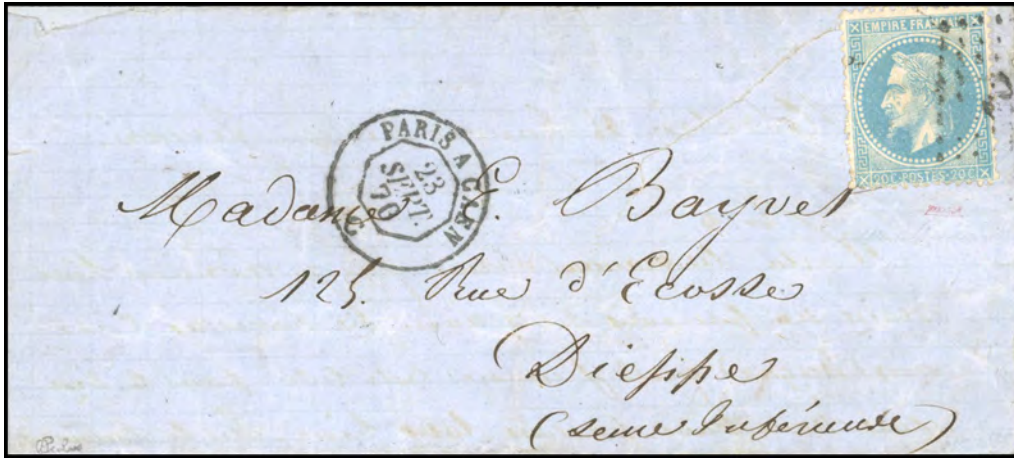 EMPIRE FRANÇAIS
20C·POSTES·20C
PARIS A CAEN
23
SEPT.
70
Madame C. Bayvet
125. Rue d'Ecosse
Dieppe
(Seine Inférieure)